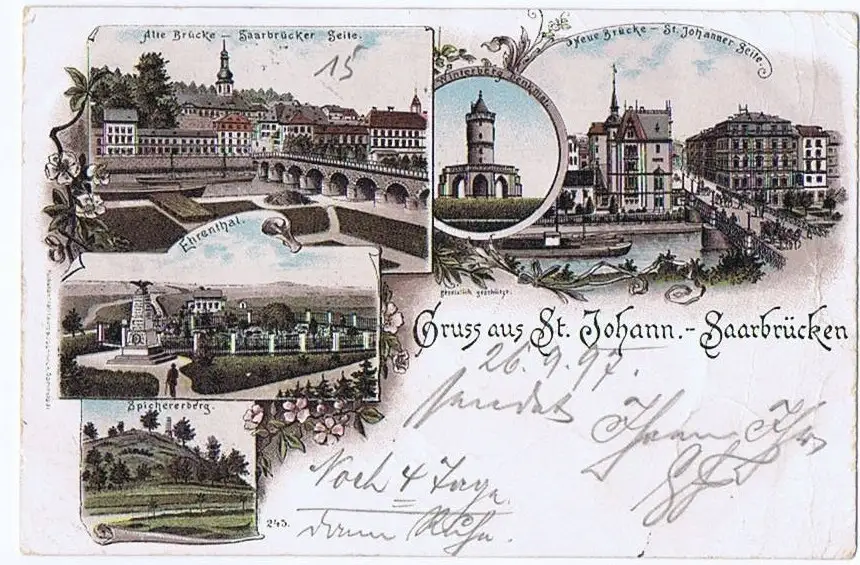 Alte Brücke – Saarbrücker Seite.
15
Winterberg Denkmal.
Neue Brücke – St. Johanner Seite.
Ehrenthal.
Gesetzlich geschützt.
Gruss aus St. Johann.-Saarbrücken
26.9.97.
sendet Ihnen Ihr
Spichererberg.
243.
Noch 4 Tage
dann Ruhe.